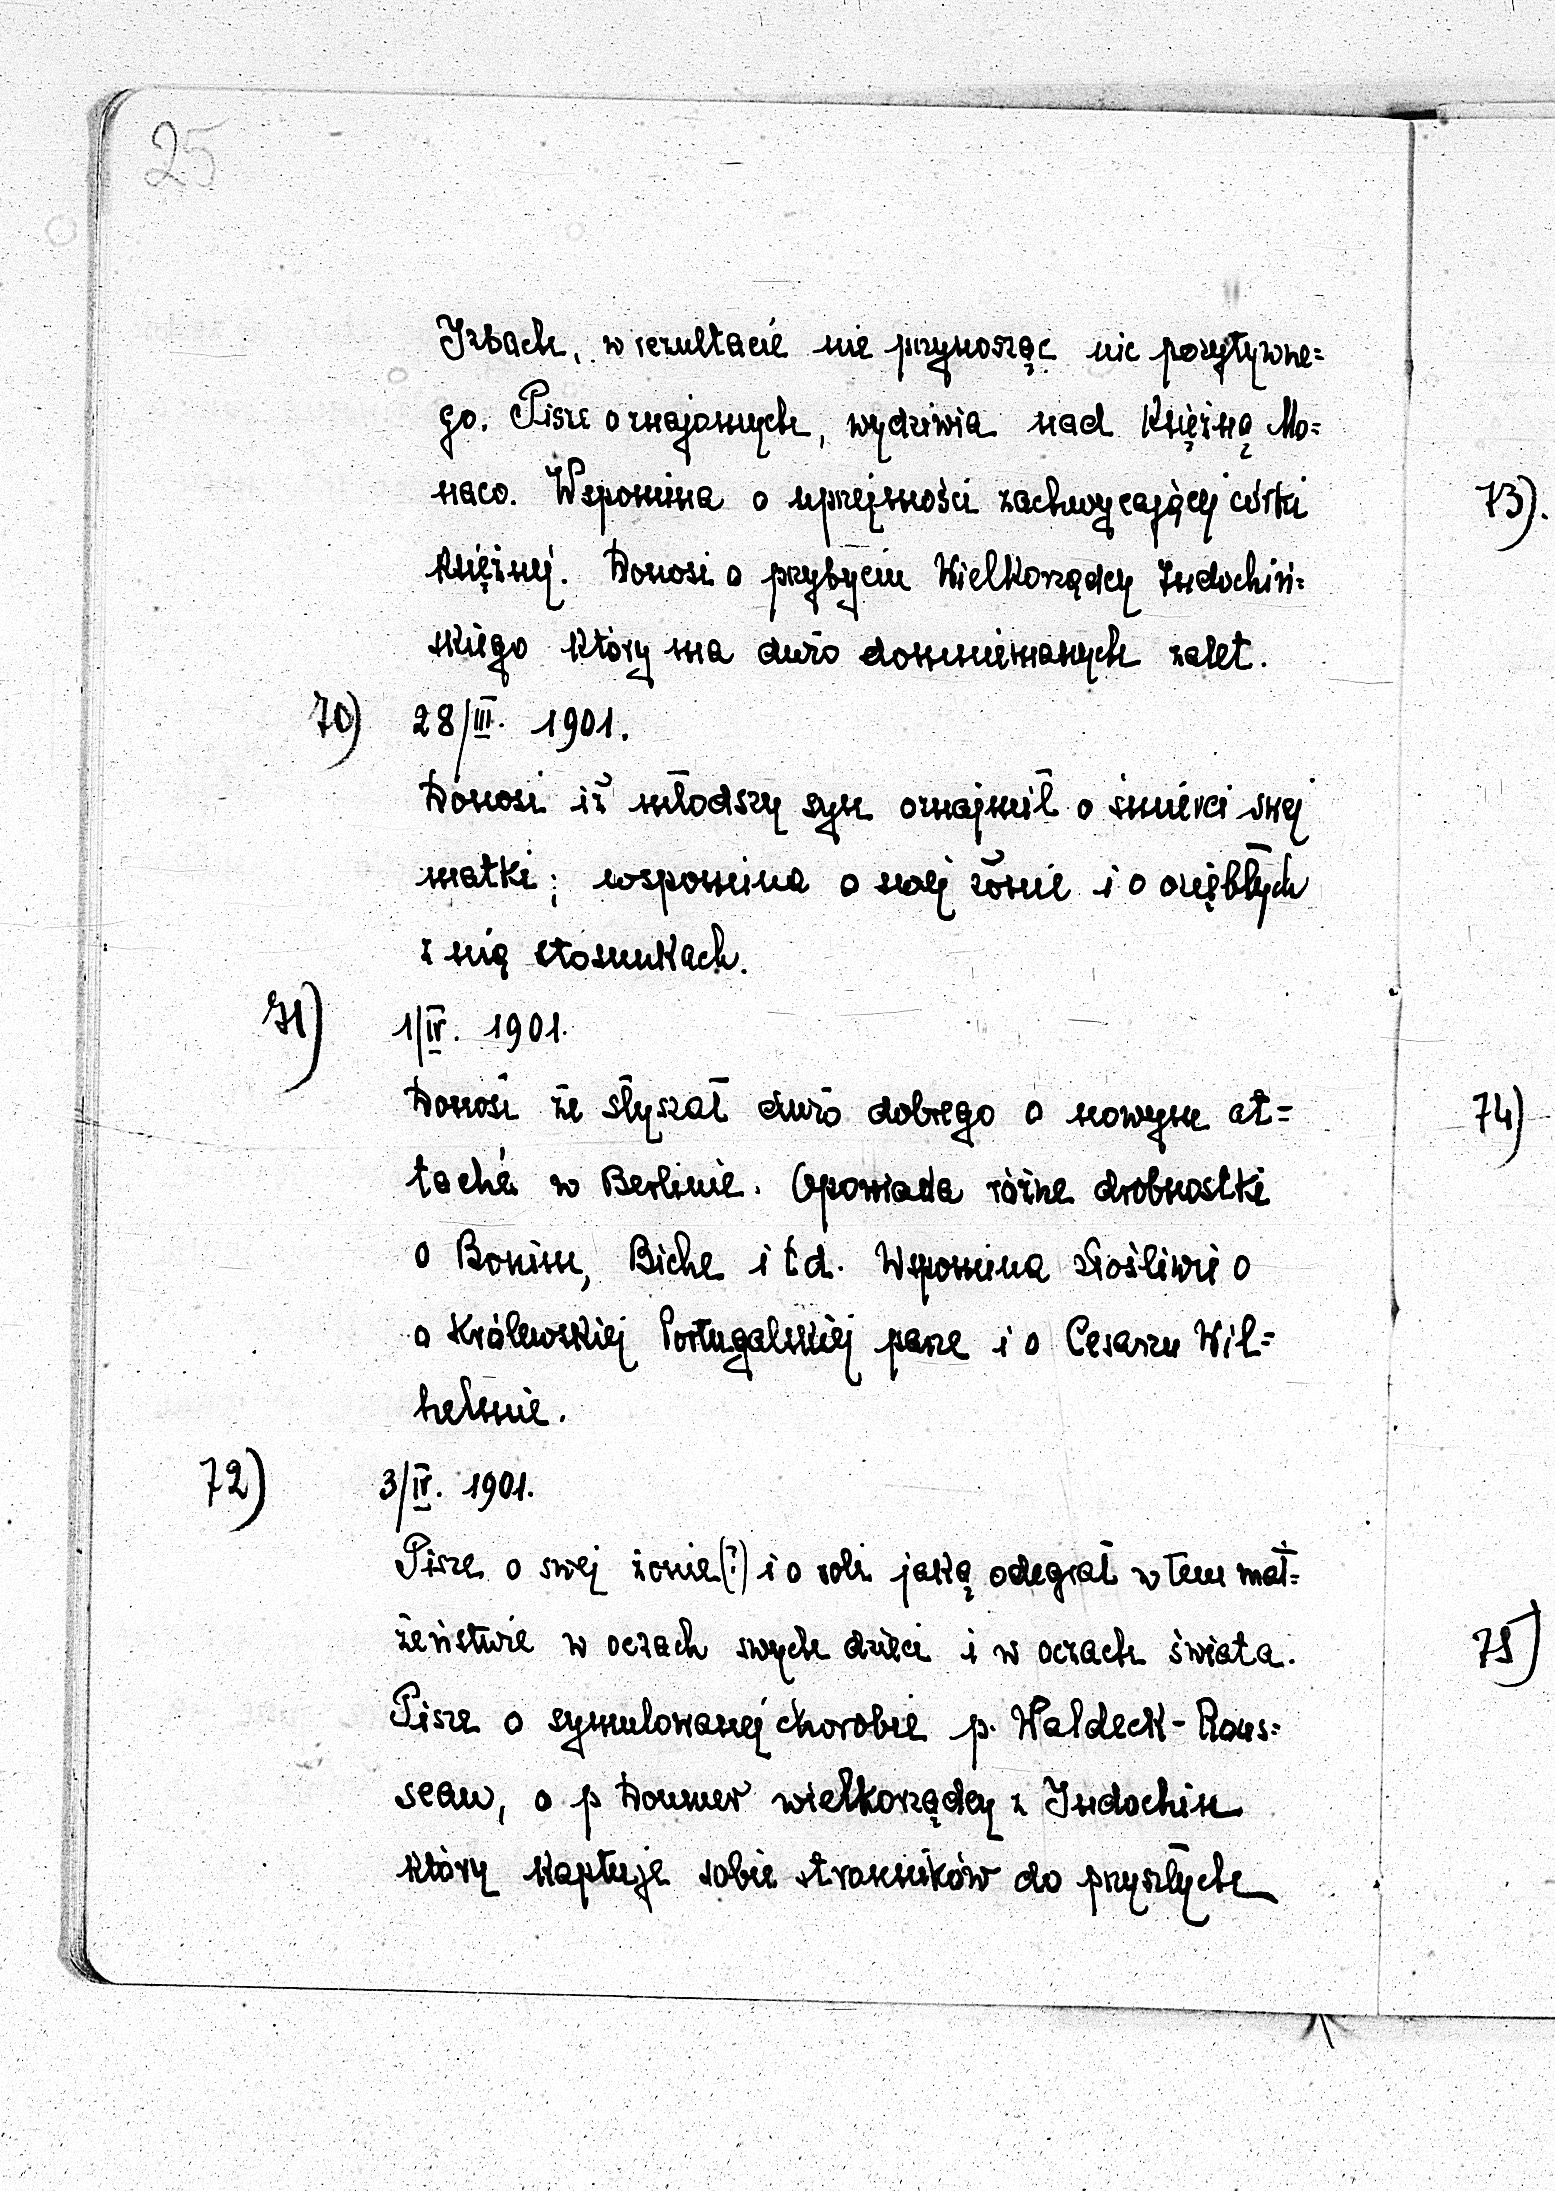 25
Izbach, w rezultacie nie przynosząc nic pozytywne=
go. Pisze o znajomych, wydziwia nad Księżną Mo=
naco. Wspomina o uprzejmości zachwycającej córki
księżnej. Donosi o przybyciu Wielkorządcy Indochiń=
skiego który ma dużo domniemanych zalet.
70) 28/III. 1901.
Donosi iż młodszy syn oznajmił o śmierci swej
matki; wspomina o swej żonie i o oziębłych
z nią stosunkach.
71) 1/IV. 1901.
Donosi że słyszał dużo dobrego o nowym at=
taché w Berlinie. Opowiada różne drobnostki
o Bonim, Biche i t d. Wspomina złośliwie o
o Królewskiej Portugalskiej parze i o Cesarzu Wil=
helmie.
72) 3/IV. 1901.
Pisze o swej żonie (?) i o roli jaką odegrał w tem mał=
żeństwie w oczach swych dzieci i w oczach świata.
Pisze o symulowanej chorobie p. Waldeck - Rous=
seau, o p Doumer wielkorządcy z Indochin
który kaptuje sobie stronników do przyszłych
73).
74)
75)